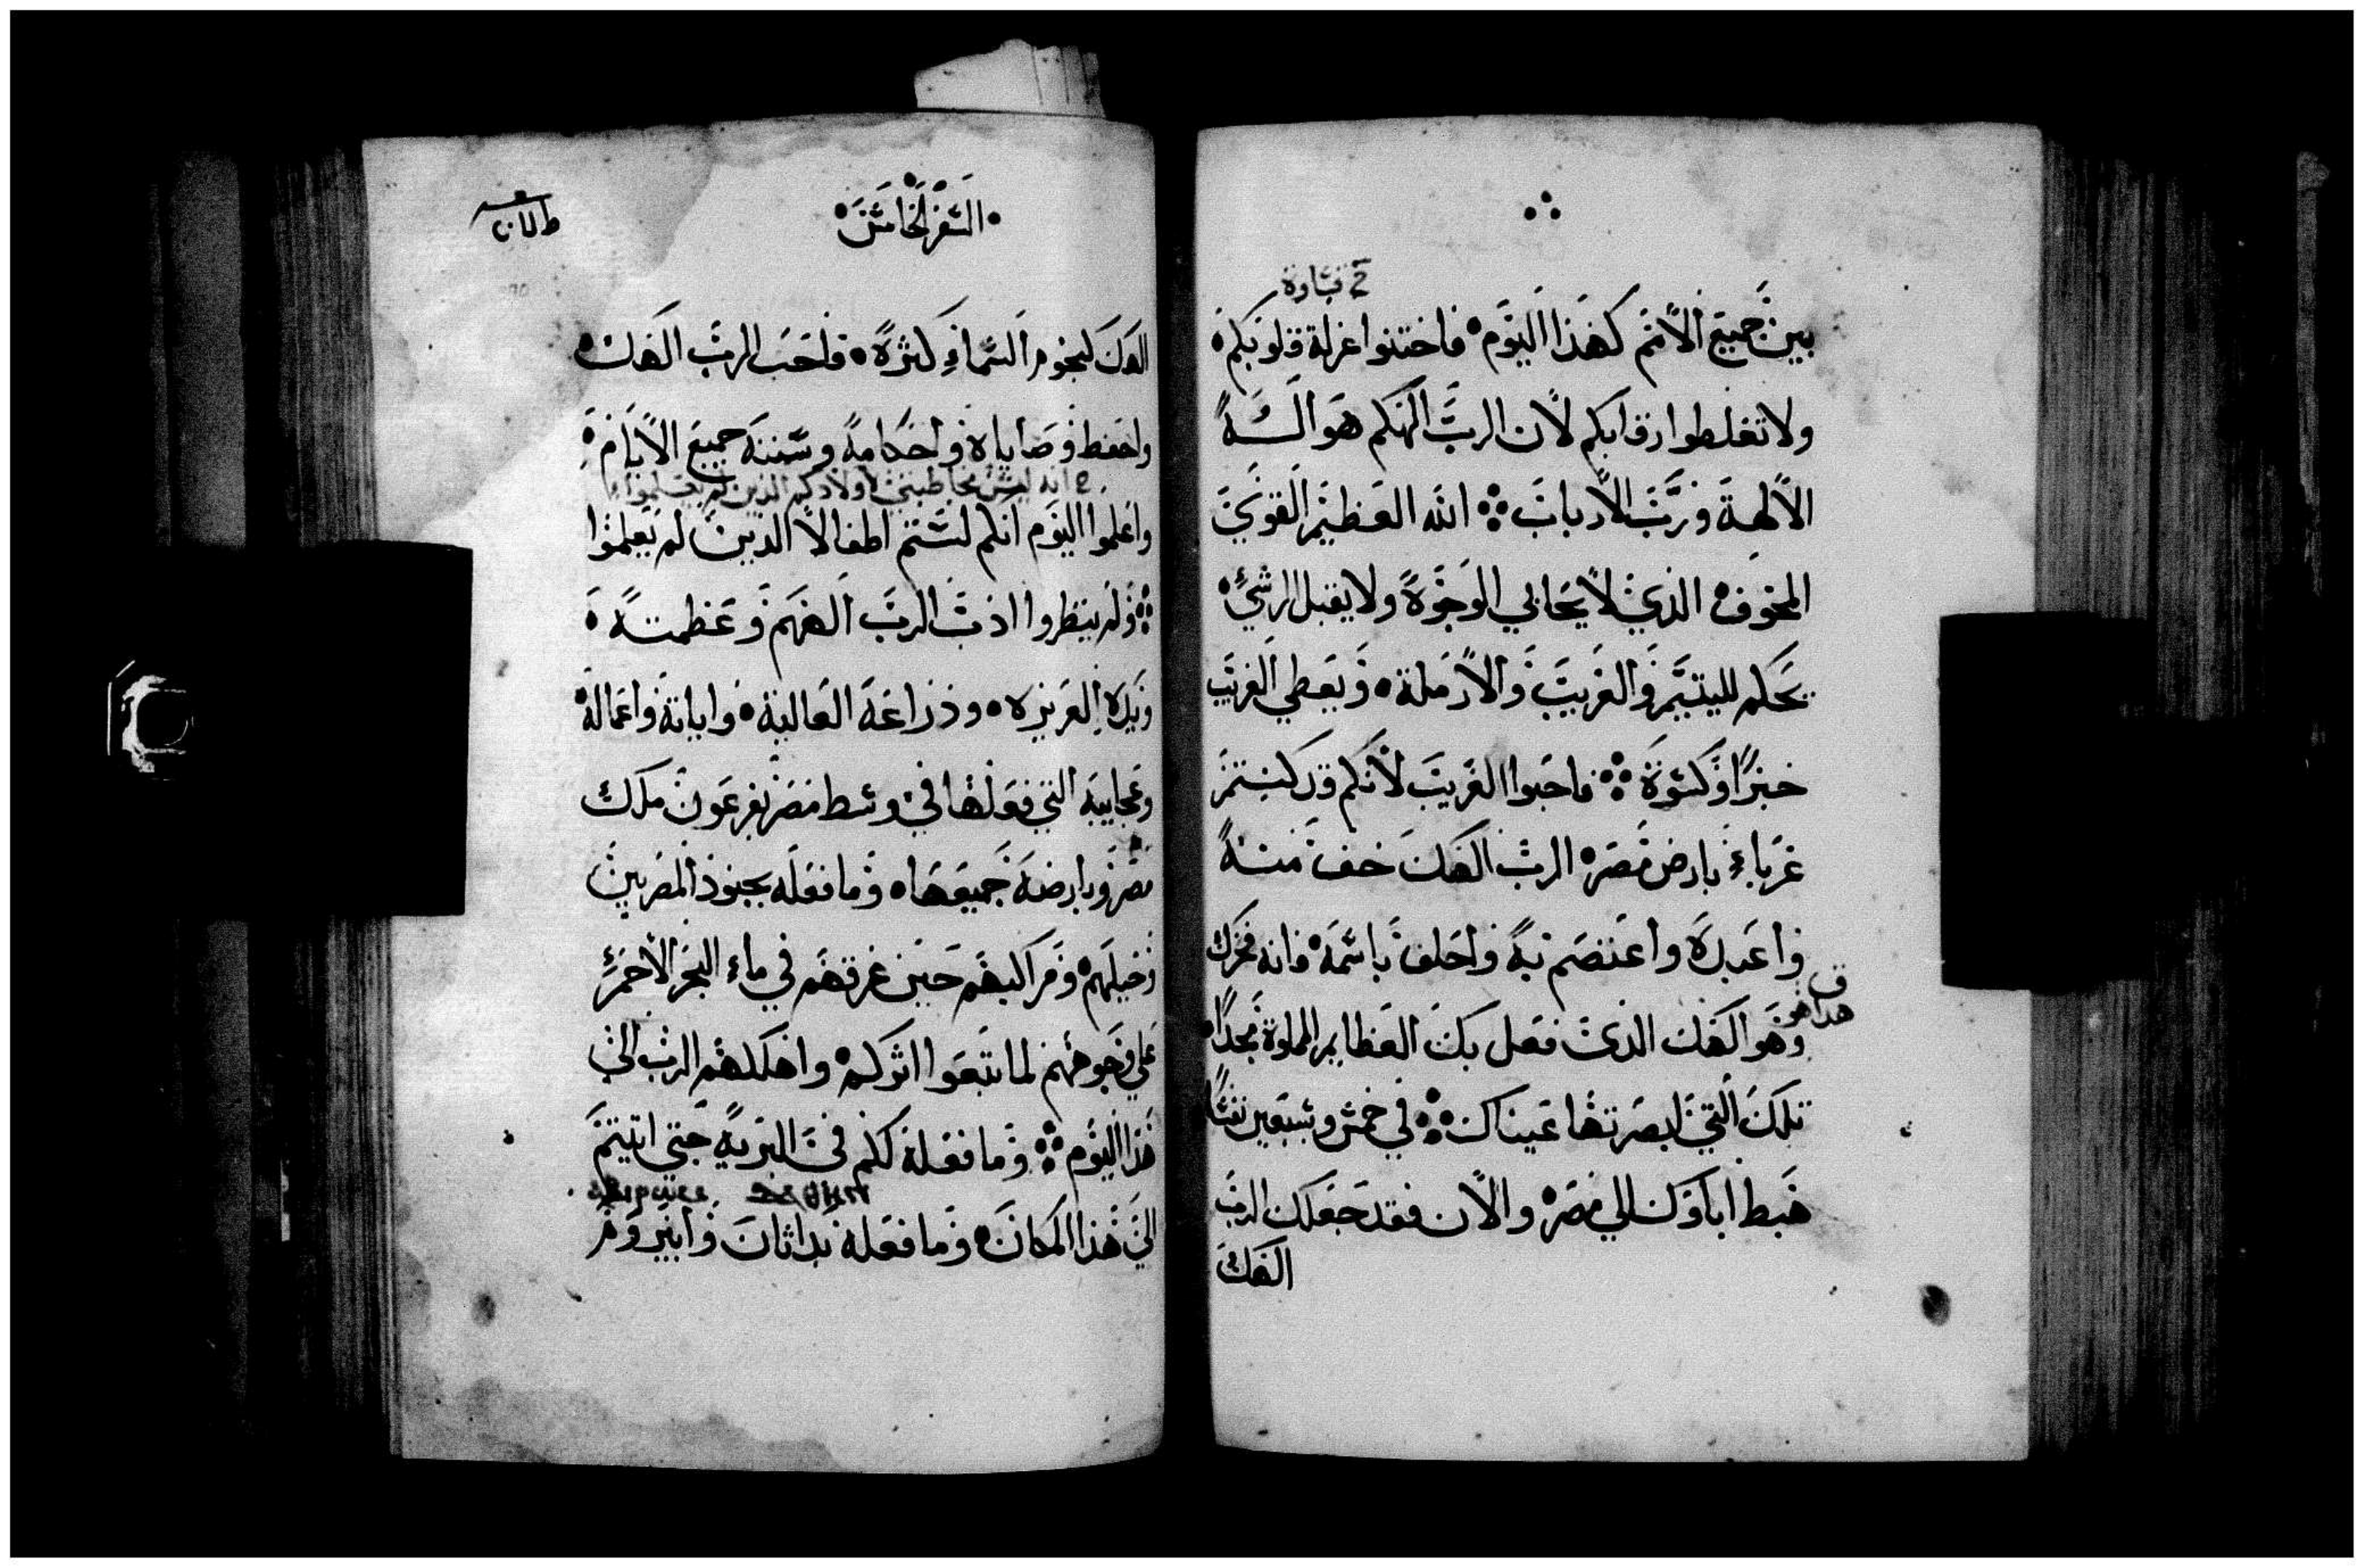 قساوة
بين جميع الامم كهذا اليوم فاختنوا غرلة قلوبكم
ولا تغلطوا رقابكم لان الرب الهكم هو اله
الالهة ورب الارباب الله العظيم القوي
المخوف الذي لا يحابي الوجوة ولا يقبل الرشي
يحكم لليتيم والغريب والارملة ويعطي الغريب
خبزا وكسوة فاحبوا الغريب لانكم قد كنتم
غرباء بارض مصر الرب الهك خف منه
واعبده واعتصم به واحلف باسمه فانه فخرك
هذا هو
وهو الهك الذي فعل بك العظايم المملوة مجدا
تلك التي ابصرتها عيناك في خمس وسبعين نفسا
هبط اباوك الي مصر والان فقد جعلك الرب
الهك
السفر الخامس
الهك كنجوم السماء كثرة فاحب الرب الهك
واحفظ وصاياه واحكامه وسننه جميع الايام
انه ليس مخاطبتي لاولادكم الذين لم يعلموا
واعلموا اليوم انكم لستم اطفالا الذين لم يعلموا
ولم ينظروا ادب الرب الههم وعظمته
ويده العزيزه وذراعه العالية واياته واعماله
وعجايبه التي فعلها في وسط مصر بفرعون ملك
مصر وبارضه جميعها وما فعله بجنود المصريين
وخيلهم ومراكبهم حين غرقهم في ماء البحر الاحمر
علي وجوههم لما تبعوا اثركم واهلكهم الرب الي
هذا اليوم وما فعله لكم في البرية حتي اتيتم
الي هذا المكان وما فعله بداثان وابيروم